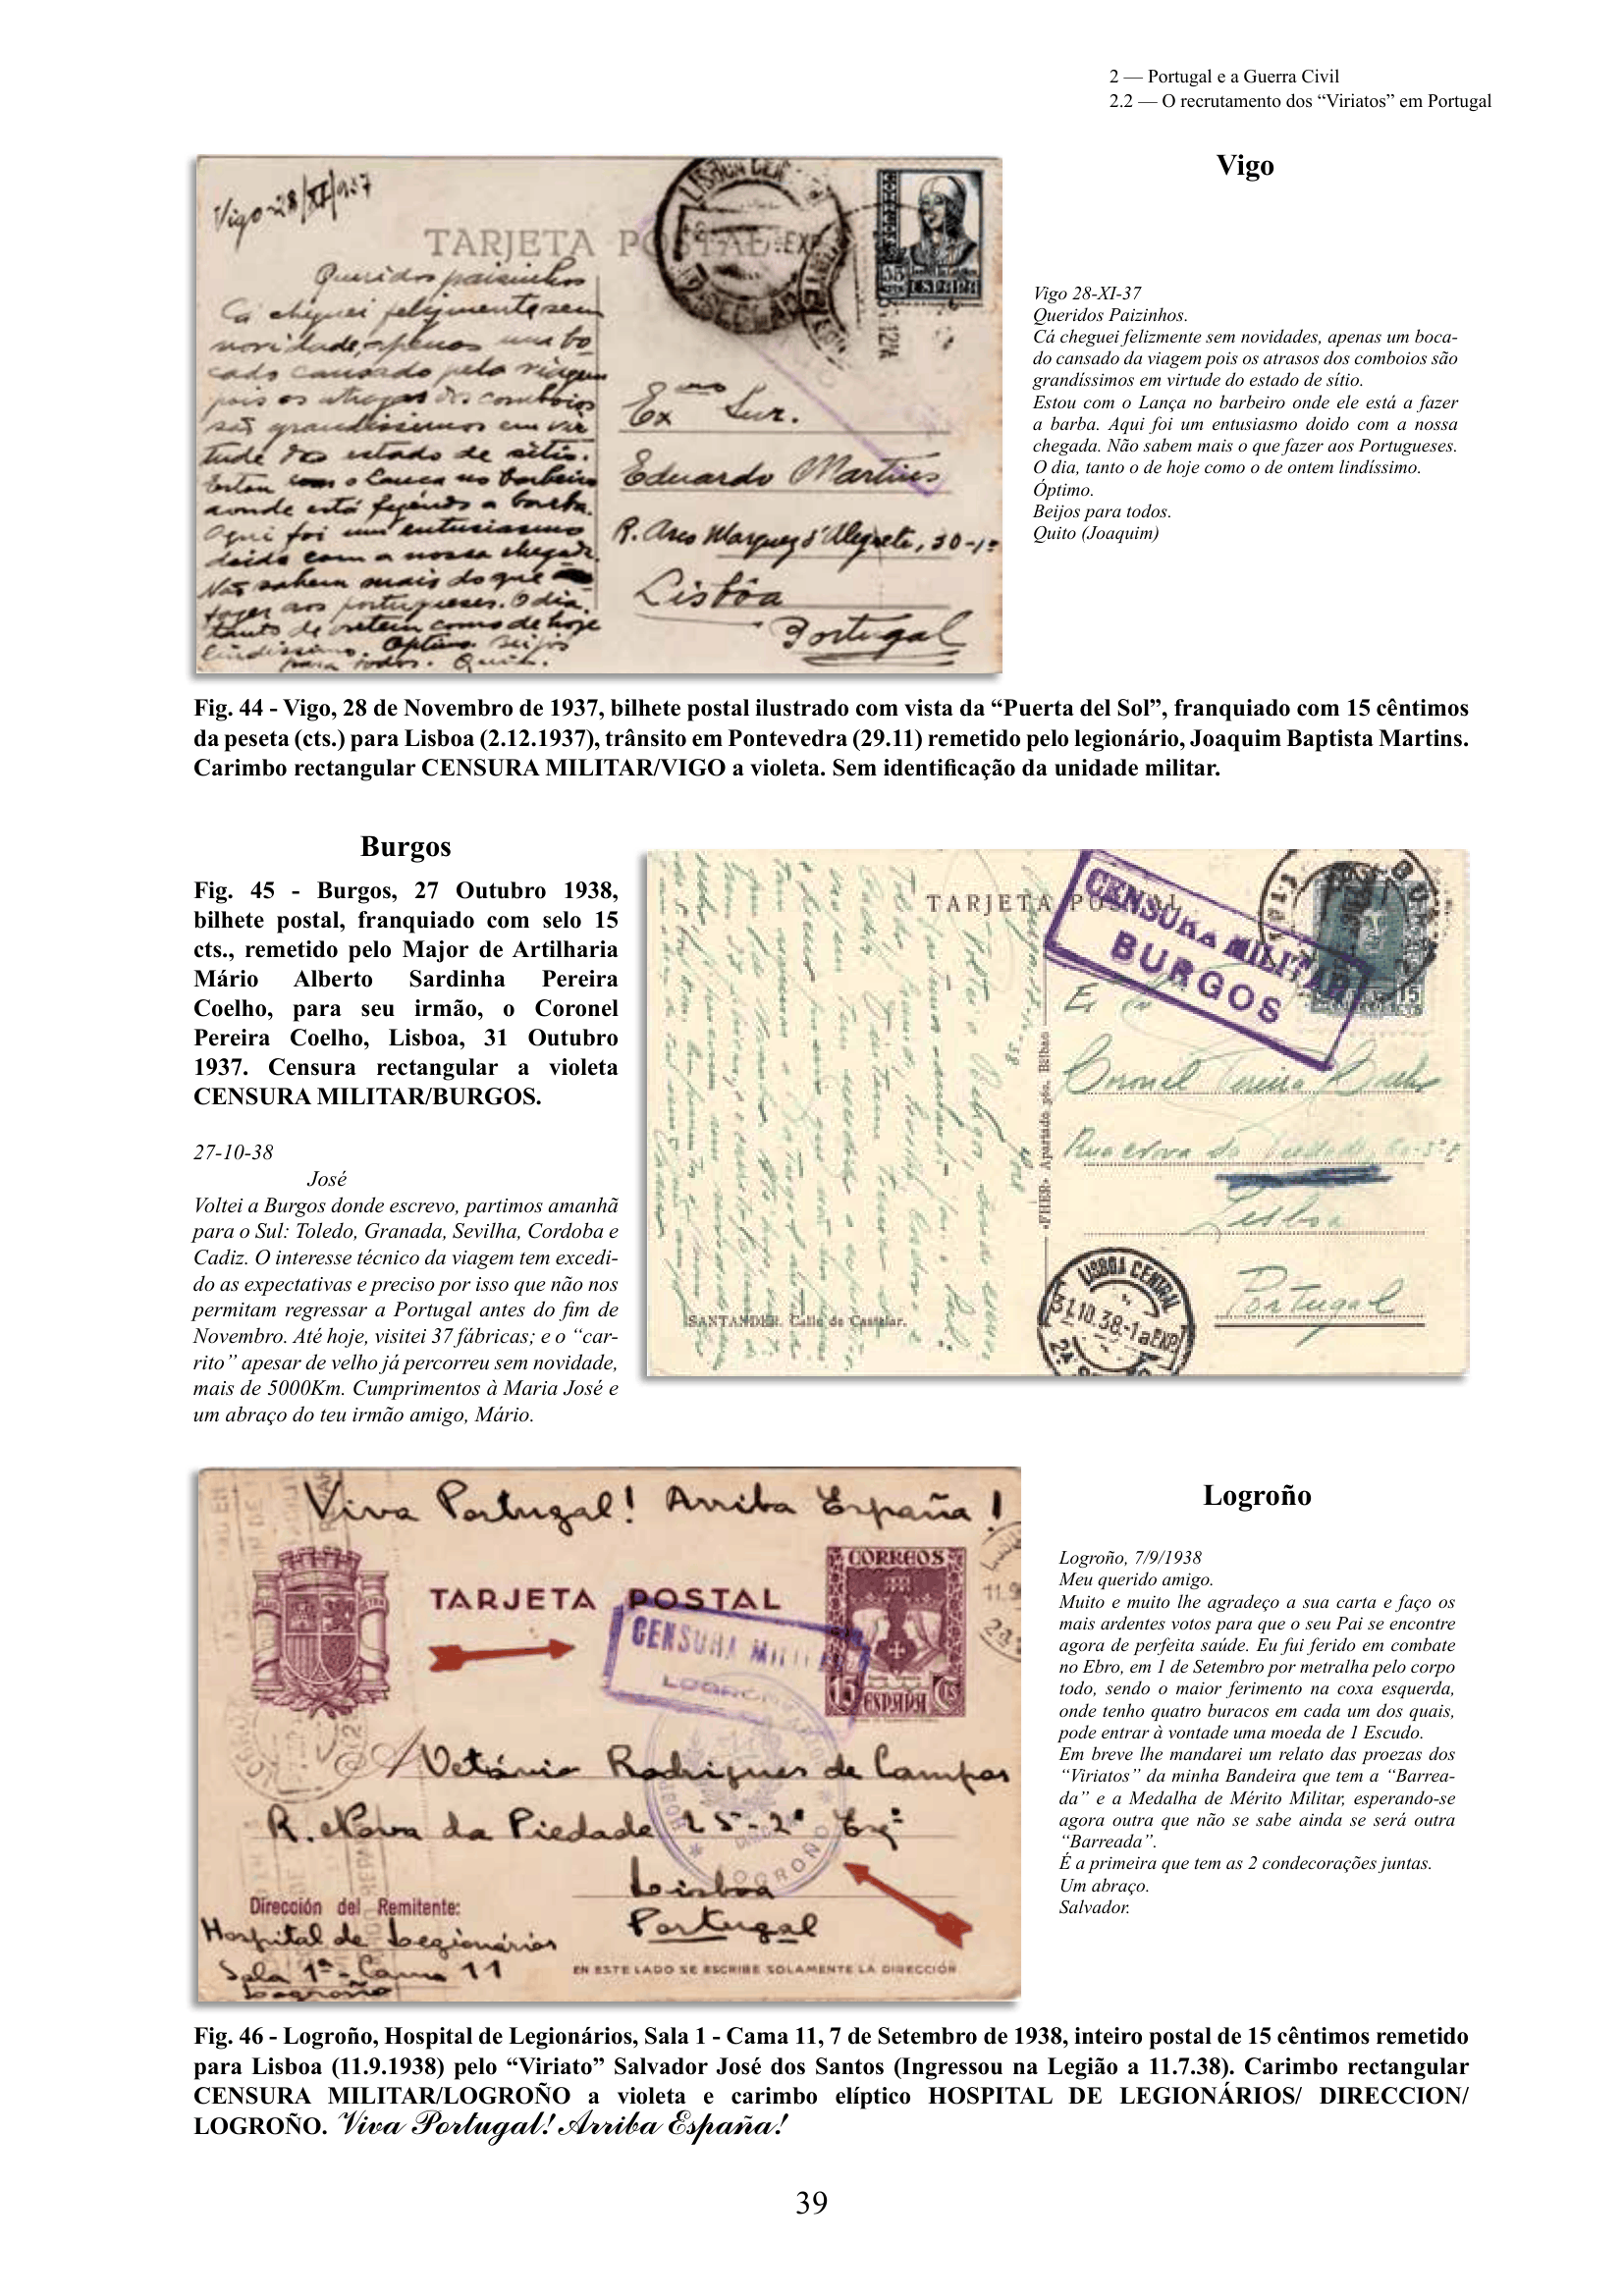 2 — Portugal e a Guerra Civil
2.2 — O recrutamento dos “Viriatos” em Portugal
Vigo
Vigo 28/XI/937
TARJETA POSTAL
Queridos paisinhos
Cá cheguei felizmente sem
novidade, apenas um bo-
cado cansado pela viagem
pois os atrazos dos comboios
são grandissimos em vir-
tude do estado de sitio.
Estou com o Lança no barbeiro
aonde está fazendo a barba.
Aqui foi um entusiasmo
doido com a nossa chegada.
Não sabem mais do que
fazer aos portugueses. O dia,
tanto de ontem como de hoje
lindissimo. Optimo. Beijos
para todos.
ESPAÑA
Eduardo Martins
R. Arco Marquez d'Alegrete, 30-1º
Lisbôa
Portugal
Vigo 28-XI-37
Queridos Paizinhos.
Cá cheguei felizmente sem novidades, apenas um boca-
do cansado da viagem pois os atrasos dos comboios são
grandíssimos em virtude do estado de sítio.
Estou com o Lança no barbeiro onde ele está a fazer
a barba. Aqui foi um entusiasmo doido com a nossa
chegada. Não sabem mais o que fazer aos Portugueses.
O dia, tanto o de hoje como o de ontem lindíssimo.
Óptimo.
Beijos para todos.
Quito (Joaquim)
Fig. 44 - Vigo, 28 de Novembro de 1937, bilhete postal ilustrado com vista da “Puerta del Sol”, franquiado com 15 cêntimos
da peseta (cts.) para Lisboa (2.12.1937), trânsito em Pontevedra (29.11) remetido pelo legionário, Joaquim Baptista Martins.
Carimbo rectangular CENSURA MILITAR/VIGO a violeta. Sem identificação da unidade militar.
Burgos
Fig. 45 - Burgos, 27 Outubro 1938,
bilhete postal, franquiado com selo 15
cts., remetido pelo Major de Artilharia
Mário Alberto Sardinha Pereira
Coelho, para seu irmão, o Coronel
Pereira Coelho, Lisboa, 31 Outubro
1937. Censura rectangular a violeta
CENSURA MILITAR/BURGOS.
27-10-38
José
Voltei a Burgos donde escrevo, partimos amanhã
para o Sul: Toledo, Granada, Sevilha, Cordoba e
Cadiz. O interesse técnico da viagem tem excedi-
do as expectativas e preciso por isso que não nos
permitam regressar a Portugal antes do fim de
Novembro. Até hoje, visitei 37 fábricas; e o “car-
rito” apesar de velho já percorreu sem novidade,
mais de 5000Km. Cumprimentos à Maria José e
um abraço do teu irmão amigo, Mário.
TARJETA POSTAL
CENSURA MILITAR
BURGOS
15
Coronel Pereira Coelho
Rua Nova da Piedade
Lisboa
Portugal
LISBOA CENTRAL
31.10.38
SANTANDER. Calle de Castelar.
Viva Portugal! Arriba España!
CORREOS
TARJETA POSTAL
CENSURA MILITAR
LOGROÑO
15 ESPAÑA Cs
Rodrigues de Campos
R. Nova da Piedade 25-2º Esqº
LOGROÑO
Lisboa
Portugal
Dirección del Remitente:
Hospital de Legionários
Sala 1ª - Cama 11
Logroño
EN ESTE LADO SE ESCRIBE SOLAMENTE LA DIRECCIÓN
Logroño
Logroño, 7/9/1938
Meu querido amigo.
Muito e muito lhe agradeço a sua carta e faço os
mais ardentes votos para que o seu Pai se encontre
agora de perfeita saúde. Eu fui ferido em combate
no Ebro, em 1 de Setembro por metralha pelo corpo
todo, sendo o maior ferimento na coxa esquerda,
onde tenho quatro buracos em cada um dos quais,
pode entrar à vontade uma moeda de 1 Escudo.
Em breve lhe mandarei um relato das proezas dos
“Viriatos” da minha Bandeira que tem a “Barrea-
da” e a Medalha de Mérito Militar, esperando-se
agora outra que não se sabe ainda se será outra
“Barreada”.
É a primeira que tem as 2 condecorações juntas.
Um abraço.
Salvador.
Fig. 46 - Logroño, Hospital de Legionários, Sala 1 - Cama 11, 7 de Setembro de 1938, inteiro postal de 15 cêntimos remetido
para Lisboa (11.9.1938) pelo “Viriato” Salvador José dos Santos (Ingressou na Legião a 11.7.38). Carimbo rectangular
CENSURA MILITAR/LOGROÑO a violeta e carimbo elíptico HOSPITAL DE LEGIONÁRIOS/ DIRECCION/
LOGROÑO. Viva Portugal! Arriba España!
39